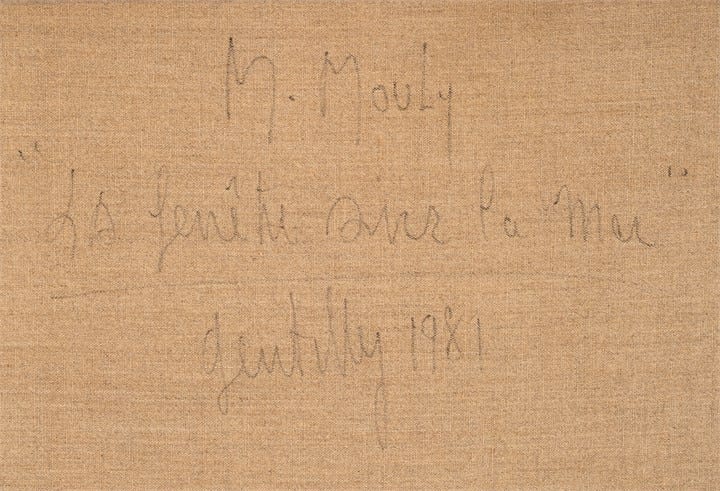 M. Mouly
"La fenêtre sur la Mer"
Gentilly 1981